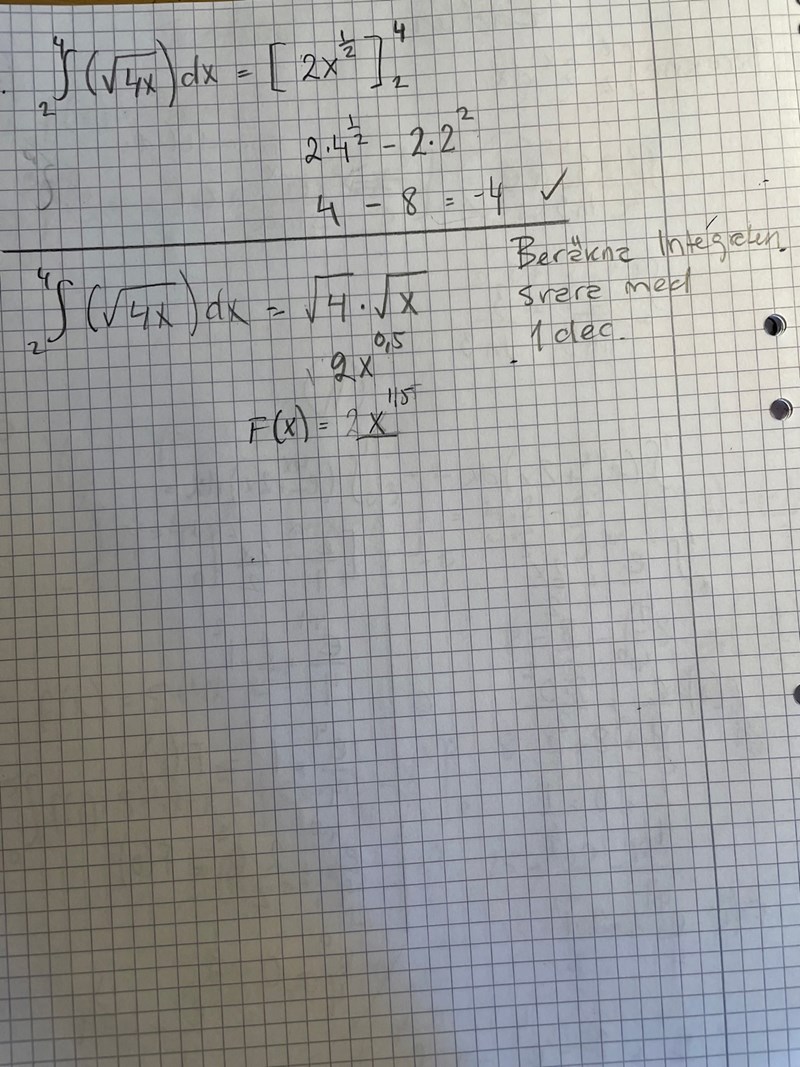 4∫2 (√4x) dx = [2x^½]₂⁴
2·4^½ - 2·2²
4 - 8 = -4 ✓
4∫2 (√4x) dx = √4 · √x
2x^0,5
F(x) = 2x^1,5
Beräkna Integralen.
svara med
1 dec.